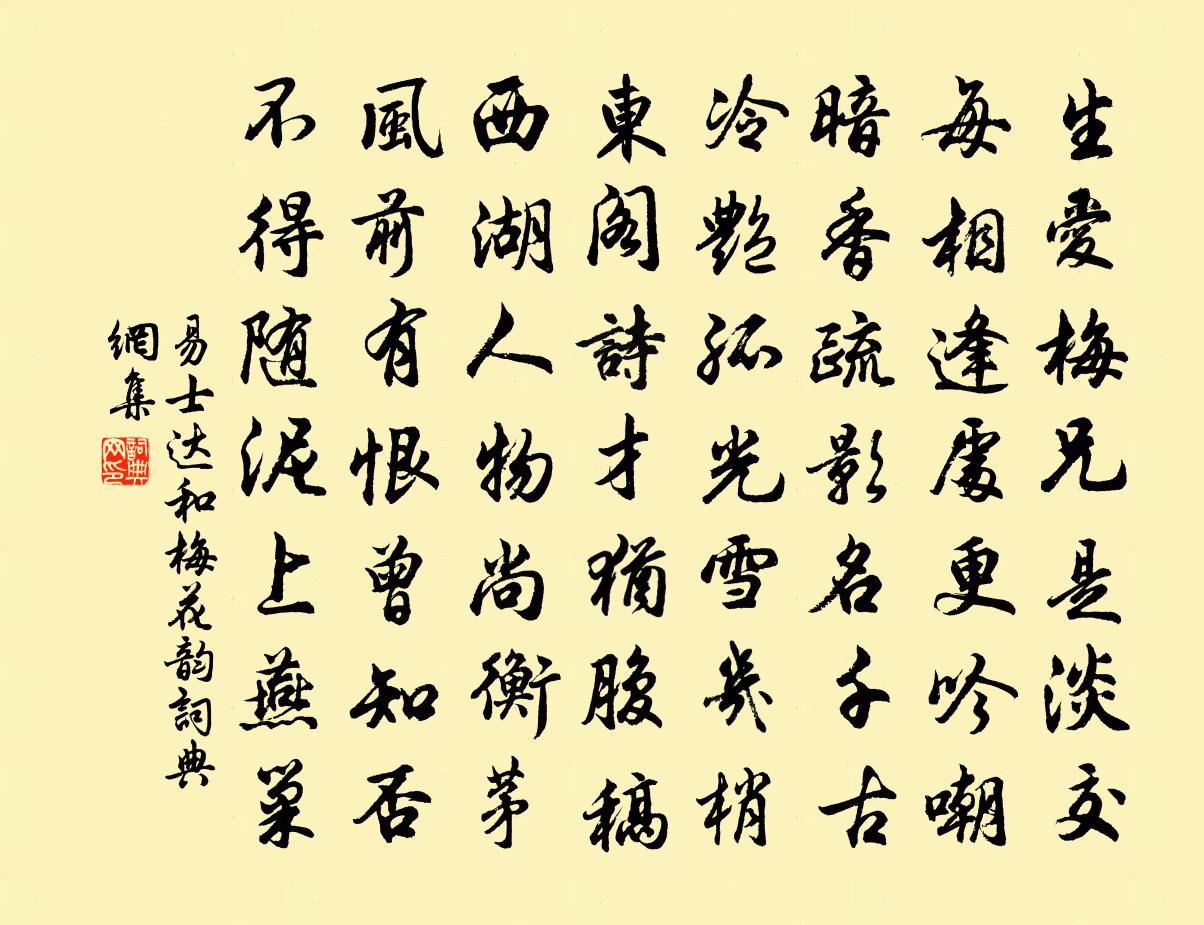 生愛梅兄是淡交
每相逢處更吟嘲
暗香疏影名千古
冷艷孤光雪幾梢
東閣詩才猶腹稿
西湖人物尚衡茅
風前有恨曾知否
不得随泥上燕巢
易士达和梅花韵詞典
網集
詞典
网印